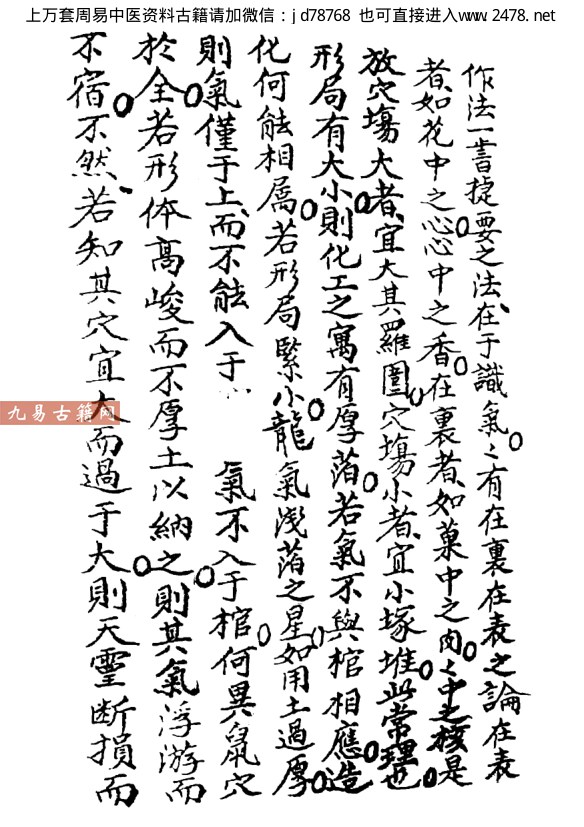 上万套周易中医资料古籍请加微信：jd78768 也可直接进入www.2478.net
作法一書捷要之法在于識氣〻有在裏在表之論在表
者如花中之心心中之香在裏者如菓中之肉〻中之核是
放穴塲大者宜大其羅圍穴塲小者宜小塚堆此常理也
形局有大小則化工之寓有厚薄若氣不與棺相應造
化何能相屬若形局緊小龍氣淺薄之星如用土過厚
則氣僅于上而不能入于 氣不入于棺何異鼠穴
於全若形体高峻而不厚土以納之則其氣浮游而
不宿不然若知其穴宜大而過于大則天靈断損而
九易古籍网